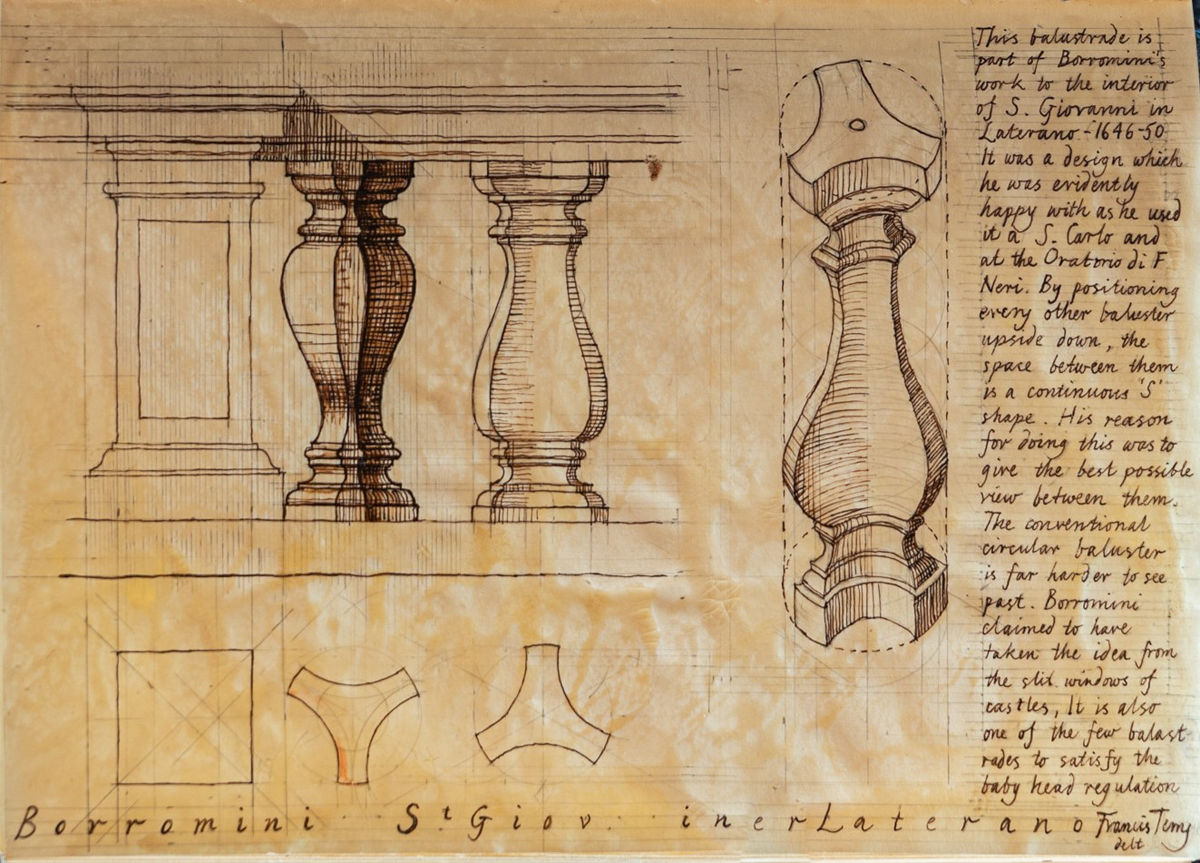 This balustrade is
part of Borromini's
work to the interior
of S. Giovanni in
Laterano - 1646-50
It was a design which
he was evidently
happy with as he used
it a S. Carlo and
at the Oratorio di F
Neri. By positioning
every other baluster
upside down, the
space between them
is a continuous 'S'
shape. His reason
for doing this was to
give the best possible
view between them.
The conventional
circular baluster
is far harder to see
past. Borromini
claimed to have
taken the idea from
the slit windows of
castles, It is also
one of the few balast-
rades to satisfy the
baby head regulation
Borromini St Giov. inerLaterano
Francis Terry
delt